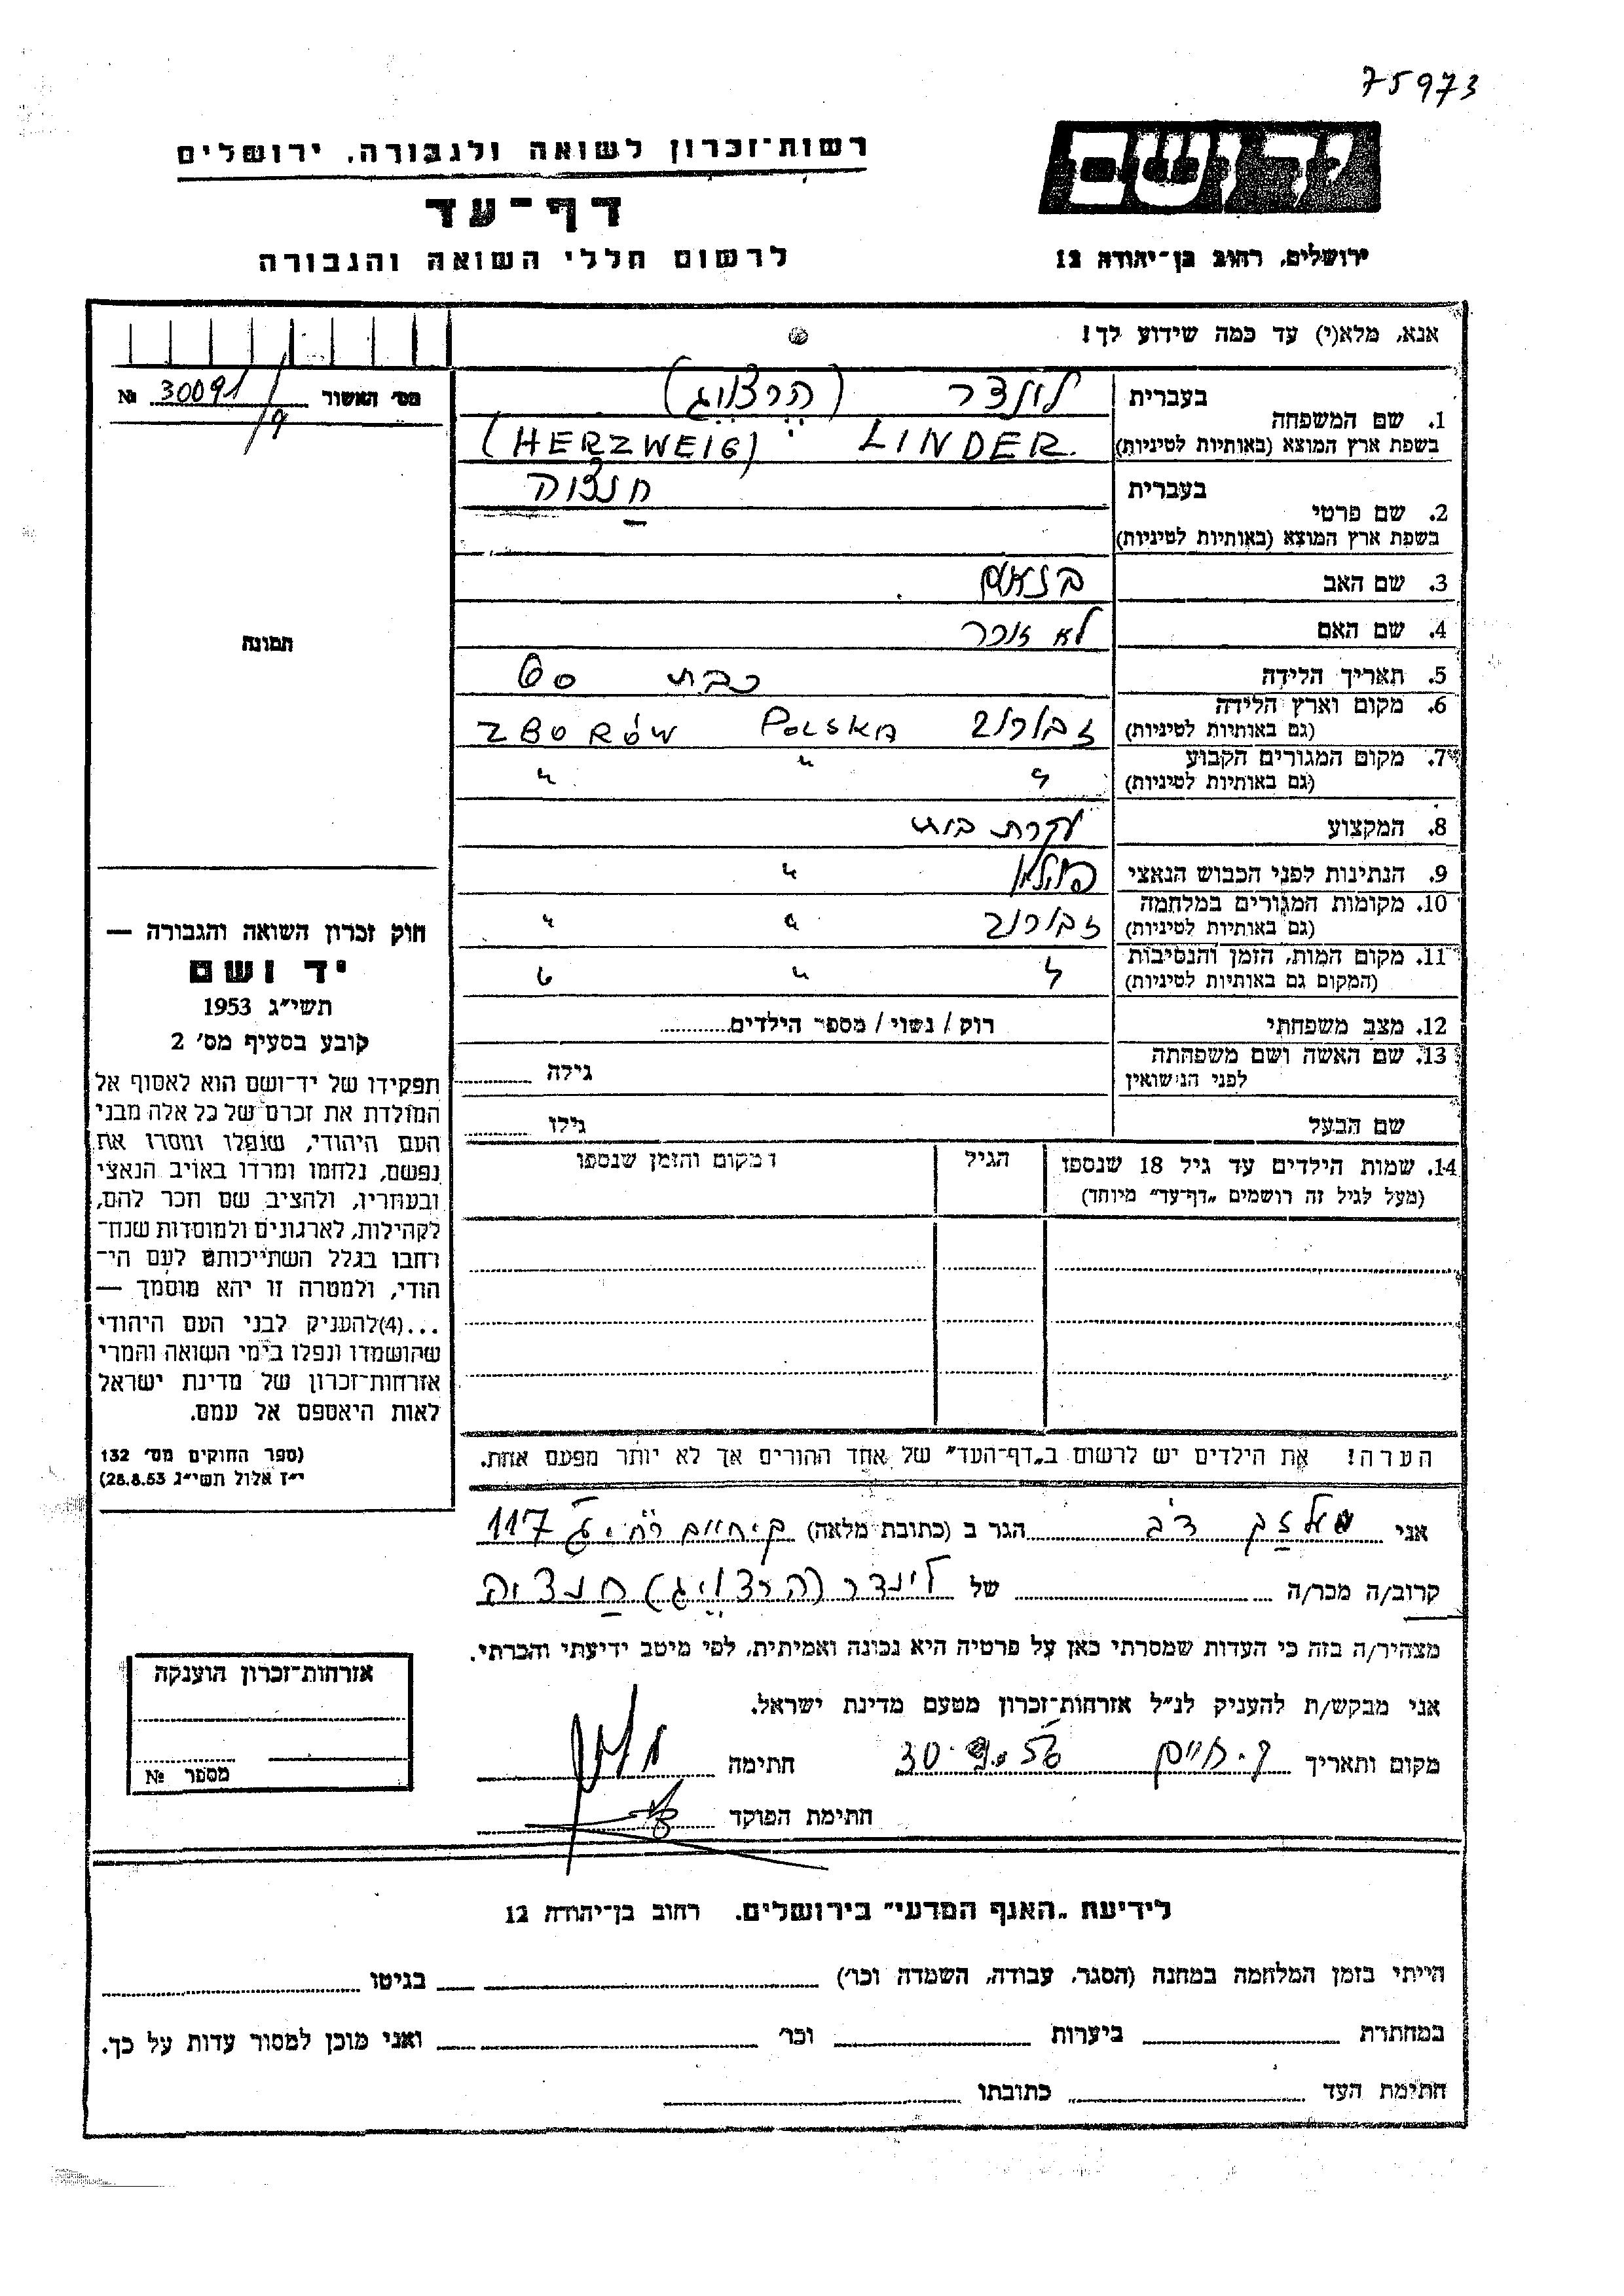 75973
רשות-זכרון לשואה ולגבורה, ירושלים
יד ושם
דף-עד
לרשום חללי השואה והגבורה
ירושלים, רחוב בן-יהודה 12
אנא, מלא(י) עד כמה שידוע לך!
מס' האשור 30091/9 №
1. שם המשפחה
בעברית לינדר (הרצוויג)
בשפת ארץ המוצא (באותיות לטיניות) LINDER (HERZWEIG)
2. שם פרטי
בעברית חנציה
בשפת ארץ המוצא (באותיות לטיניות)
3. שם האב
4. שם האם לא זוכר
5. תאריך הלידה כבת 60
6. מקום וארץ הלידה זבורוב POLSKA ZBORÓW
(גם באותיות לטיניות)
7. מקום המגורים הקבוע " " "
(גם באותיות לטיניות)
8. המקצוע עקרת בית
9. הנתינות לפני הכבוש הנאצי "
10. מקומות המגורים במלחמה זבורוב " "
(גם באותיות לטיניות)
11. מקום המות, הזמן והנסיבות " " "
(המקום גם באותיות לטיניות)
12. מצב משפחתי רוק / נשוי / מספר הילדים
13. שם האשה ושם משפחתה
לפני הנישואין גילה
שם הבעל גילו
14. שמות הילדים עד גיל 18 שנספו הגיל המקום והזמן שנספו
(מעל לגיל זה רושמים „דף-עד" מיוחד)
הערה! את הילדים יש לרשום ב„דף-העד" של אחד ההורים אך לא יותר מפעם אחת.
תמונה
חוק זכרון השואה והגבורה —
יד ושם
תשי"ג 1953
קובע בסעיף מס' 2
תפקידו של יד-ושם הוא לאסוף אל
המולדת את זכרם של כל אלה מבני
העם היהודי, שנפלו ומסרו את
נפשם, נלחמו ומרדו באויב הנאצי
ובעוזריו, ולהציב שם וזכר להם,
לקהילות, לארגונים ולמוסדות שנח-
רבו בגלל השתייכותם לעם הי-
הודי, ולמטרה זו יהא מוסמך —
...(4) להעניק לבני העם היהודי
שהושמדו ונפלו בימי השואה והמרי
אזרחות-זכרון של מדינת ישראל
לאות היאספם אל עמם.
(ספר החוקים מס' 132
י"ז אלול תשי"ג 28.8.53)
אני דב הגר ב (כתובת מלאה) ק. חיים 117
קרוב/ה מכר/ה של לינדר (הרצוויג) חנציה
מצהיר/ה בזה כי העדות שמסרתי כאן על פרטיה היא נכונה ואמיתית, לפי מיטב ידיעתי והכרתי.
אני מבקש/ת להעניק לנ"ל אזרחות-זכרון מטעם מדינת ישראל.
מקום ותאריך ק. חיים 30.9.56 חתימה
חתימת הפוקד
אזרחות-זכרון הוענקה
מספר №
לידיעת „האגף המדעי" בירושלים. רחוב בן-יהודה 12
הייתי בזמן המלחמה במחנה (הסגר, עבודה, השמדה וכו') בגיטו
במחתרת ביערות וכו' ואני מוכן למסור עדות על כך.
חתימת העד כתובתו